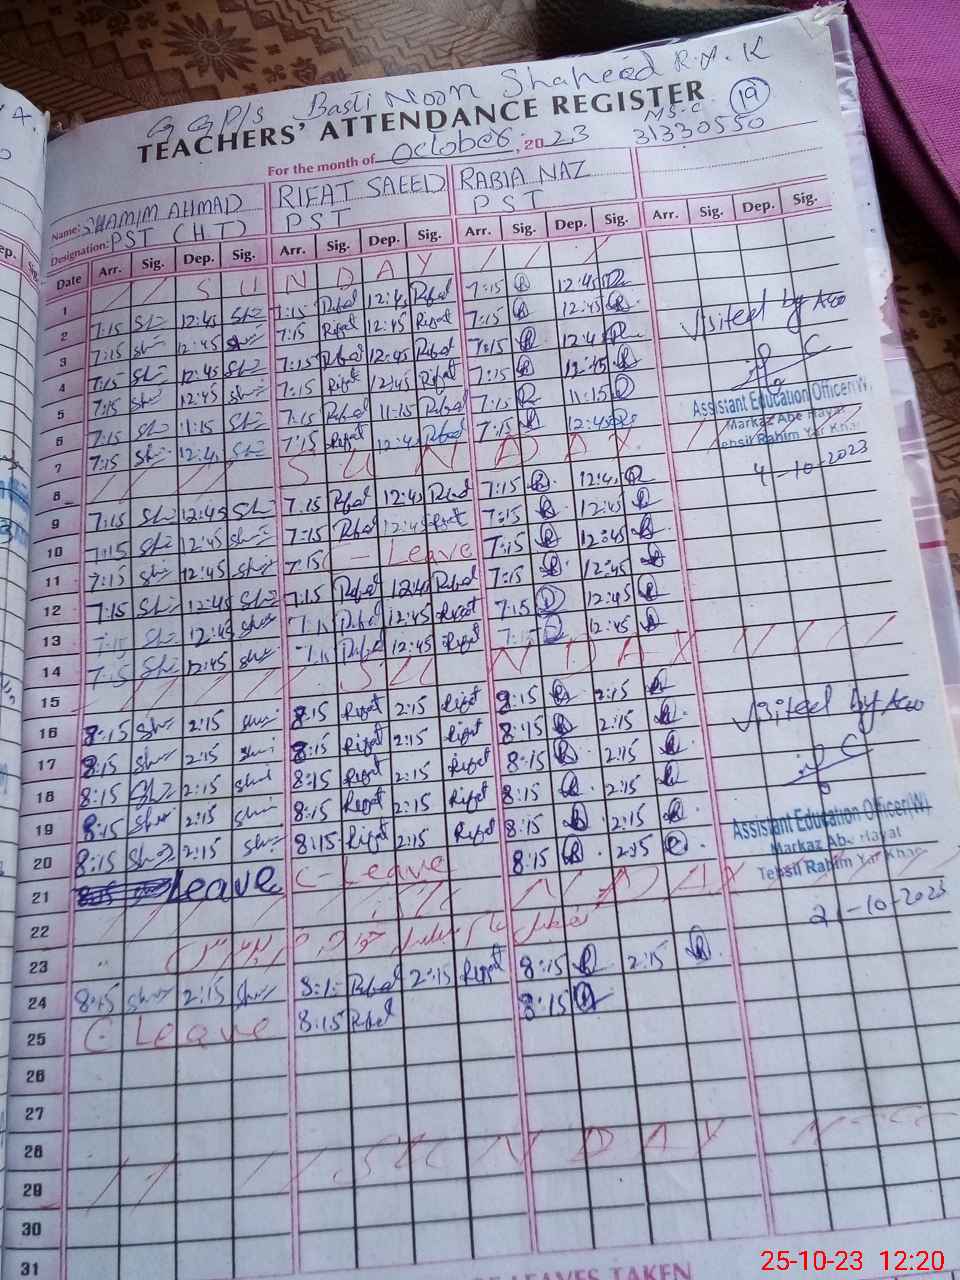 G G P/S Basti Noon Shaheed R.Y.K
TEACHERS' ATTENDANCE REGISTER
19
M.S.C
31330550
For the month of October, 2023
Name: SHAMIM AHMAD RIFAT SAEED RABIA NAZ
Designation: PST (HT) PST PST
Date Arr. Sig. Dep. Sig. Arr. Sig. Dep. Sig. Arr. Sig. Dep. Sig. Arr. Sig. Dep. Sig.
1 SUNDAY
2 7:15 12:45 7:15 Rifat 12:45 Rifat 7:15 12:45
3 7:15 12:45 7:15 Rifat 12:45 Rifat 7:15 12:45
4 7:15 12:45 7:15 Rifat 12:45 Rifat 7:15 12:45
5 7:15 12:45 7:15 Rifat 12:45 Rifat 7:15 12:45
6 7:15 11:15 7:15 Rifat 11:15 Rifat 7:15 11:15
7 7:15 12:45 7:15 Rifat 12:45 Rifat 7:15 12:45
8 SUNDAY
9 7:15 12:45 7:15 Rifat 12:45 Rifat 7:15 12:45
10 7:15 12:45 7:15 Rifat 12:45 Rifat 7:15 12:45
11 7:15 12:45 7:15 C-Leave 7:15 12:45
12 7:15 12:45 7:15 Rifat 12:45 Rifat 7:15 12:45
13 7:15 12:45 7:15 Rifat 12:45 Rifat 7:15 12:45
14 7:15 12:45 7:15 Rifat 12:45 Rifat 7:15 12:45
15 SUNDAY
16 8:15 2:15 8:15 Rifat 2:15 Rifat 8:15 2:15
17 8:15 2:15 8:15 Rifat 2:15 Rifat 8:15 2:15
18 8:15 2:15 8:15 Rifat 2:15 Rifat 8:15 2:15
19 8:15 2:15 8:15 Rifat 2:15 Rifat 8:15 2:15
20 8:15 2:15 8:15 Rifat 2:15 Rifat 8:15 2:15
21 Leave C-Leave 8:15 2:15
22 SUNDAY
23
24 8:15 2:15 8:15 Rifat 2:15 Rifat 8:15 2:15
25 C Leave 8:15 Rifat 8:15
26
27
28
29 SUNDAY
30
31
Visited by AEO
Assistant Education Officer(W)
Markaz Abe Hayat
Tehsil Rahim Yar Khan
4-10-2023
Visited by AEO
Assistant Education Officer(W)
Markaz Abe Hayat
Tehsil Rahim Yar Khan
21-10-2023
LEAVES TAKEN
25-10-23 12:20